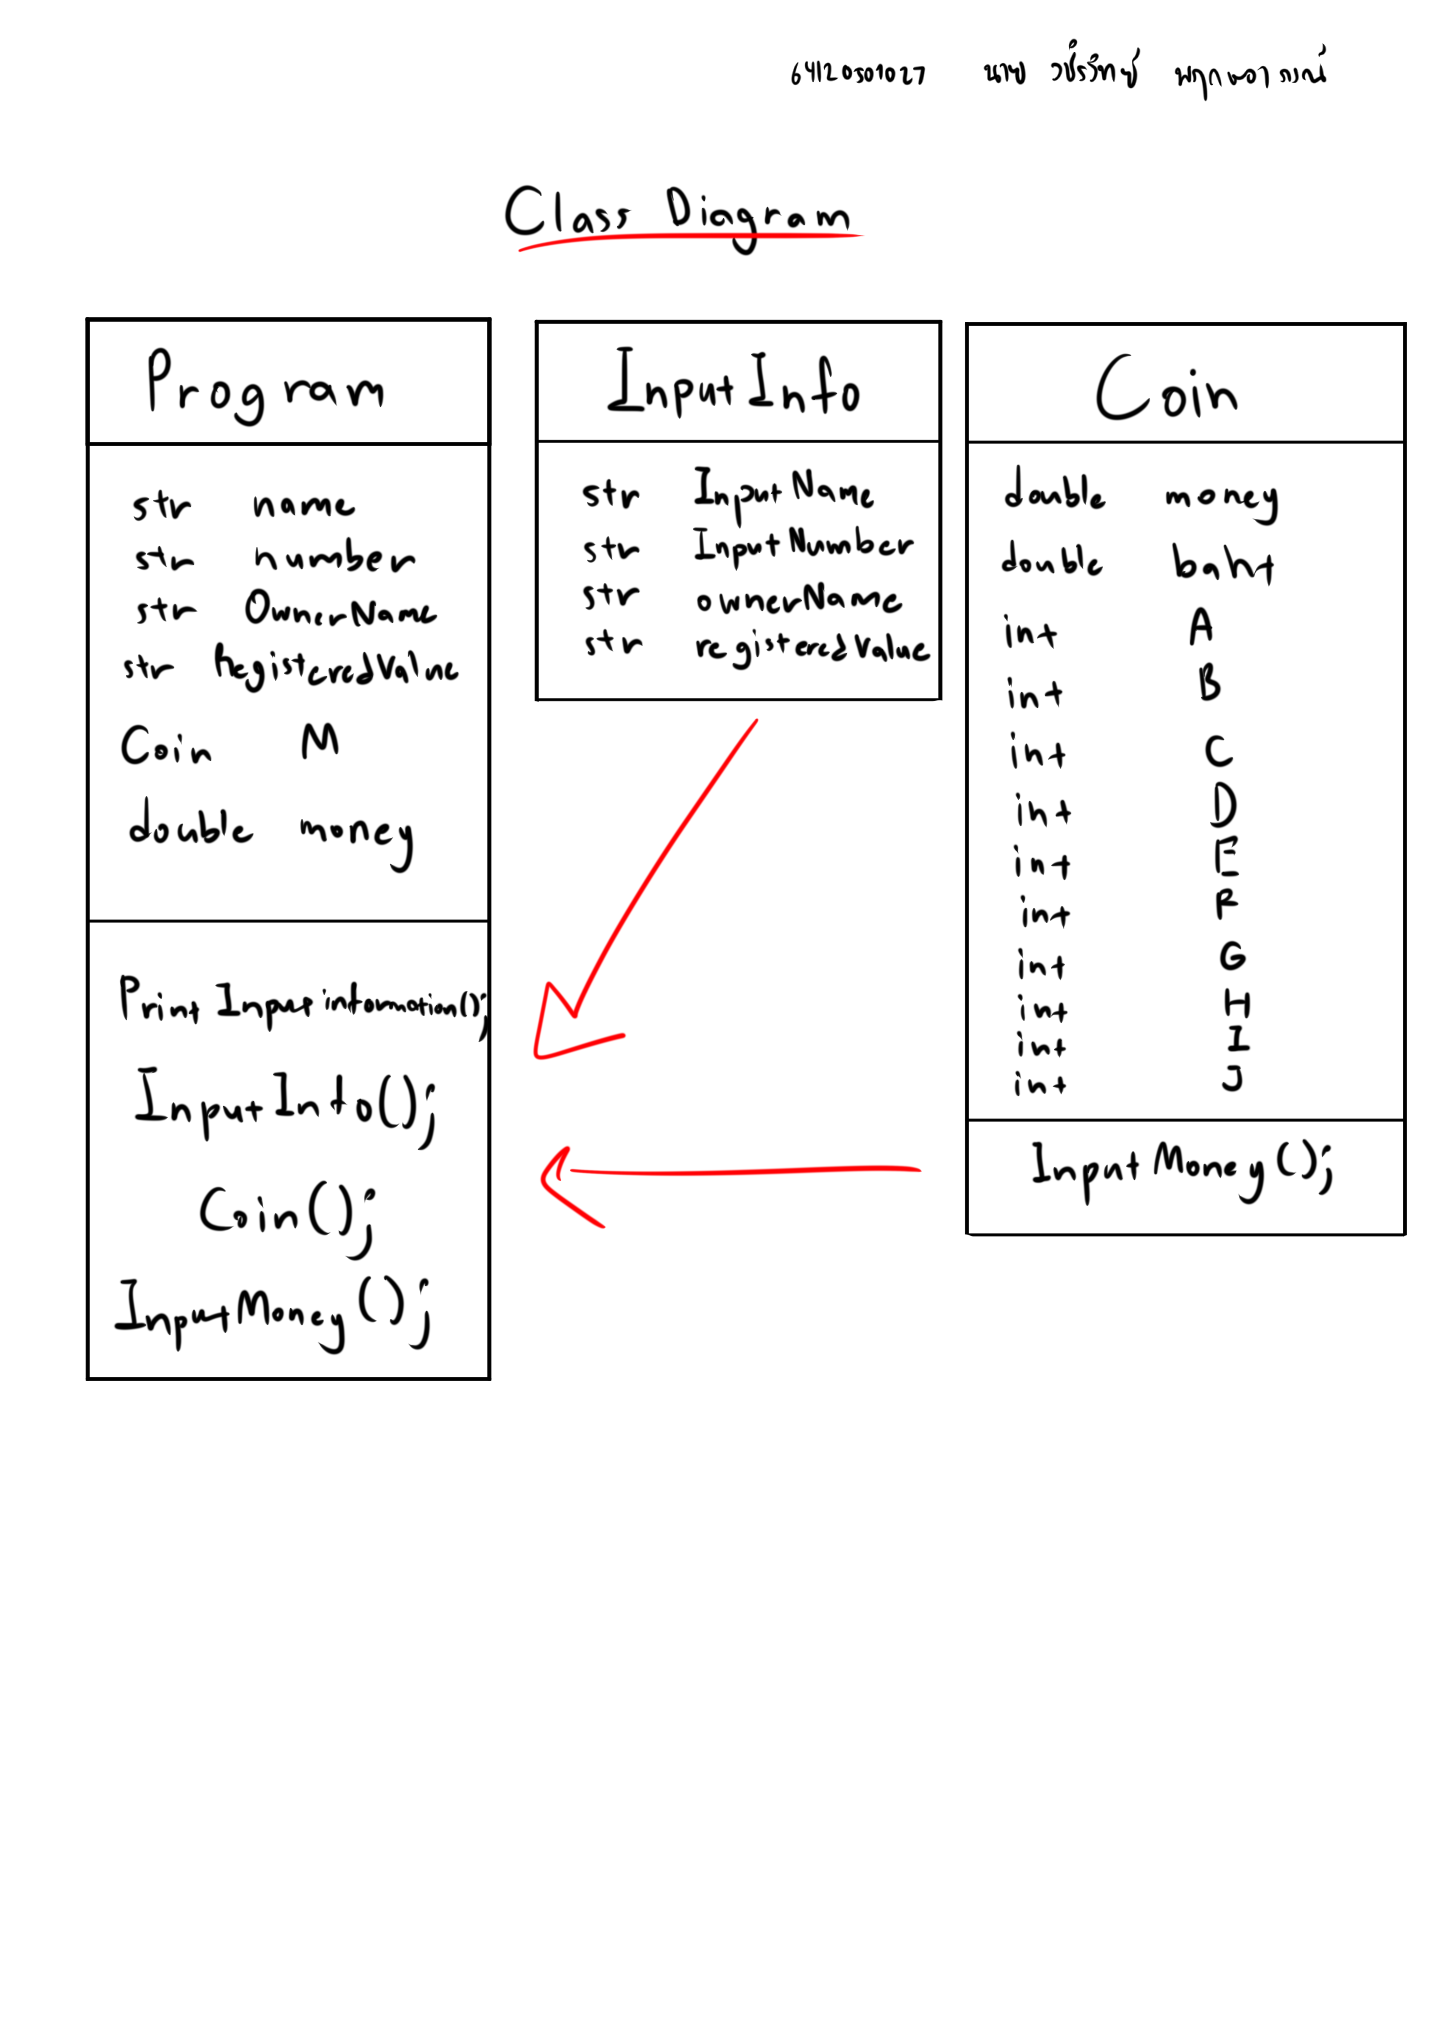 64120501027 นาย วชิรวิทย์ พฤกษาภรณ์
Class Diagram
Program
str name
str number
str OwnerName
str RegisteredValue
Coin M
double money
Print Input information();
InputInfo();
Coin();
InputMoney();
InputInfo
str InputName
str InputNumber
str ownerName
str registeredValue
Coin
double money
double baht
int A
int B
int C
int D
int E
int F
int G
int H
int I
int J
InputMoney();